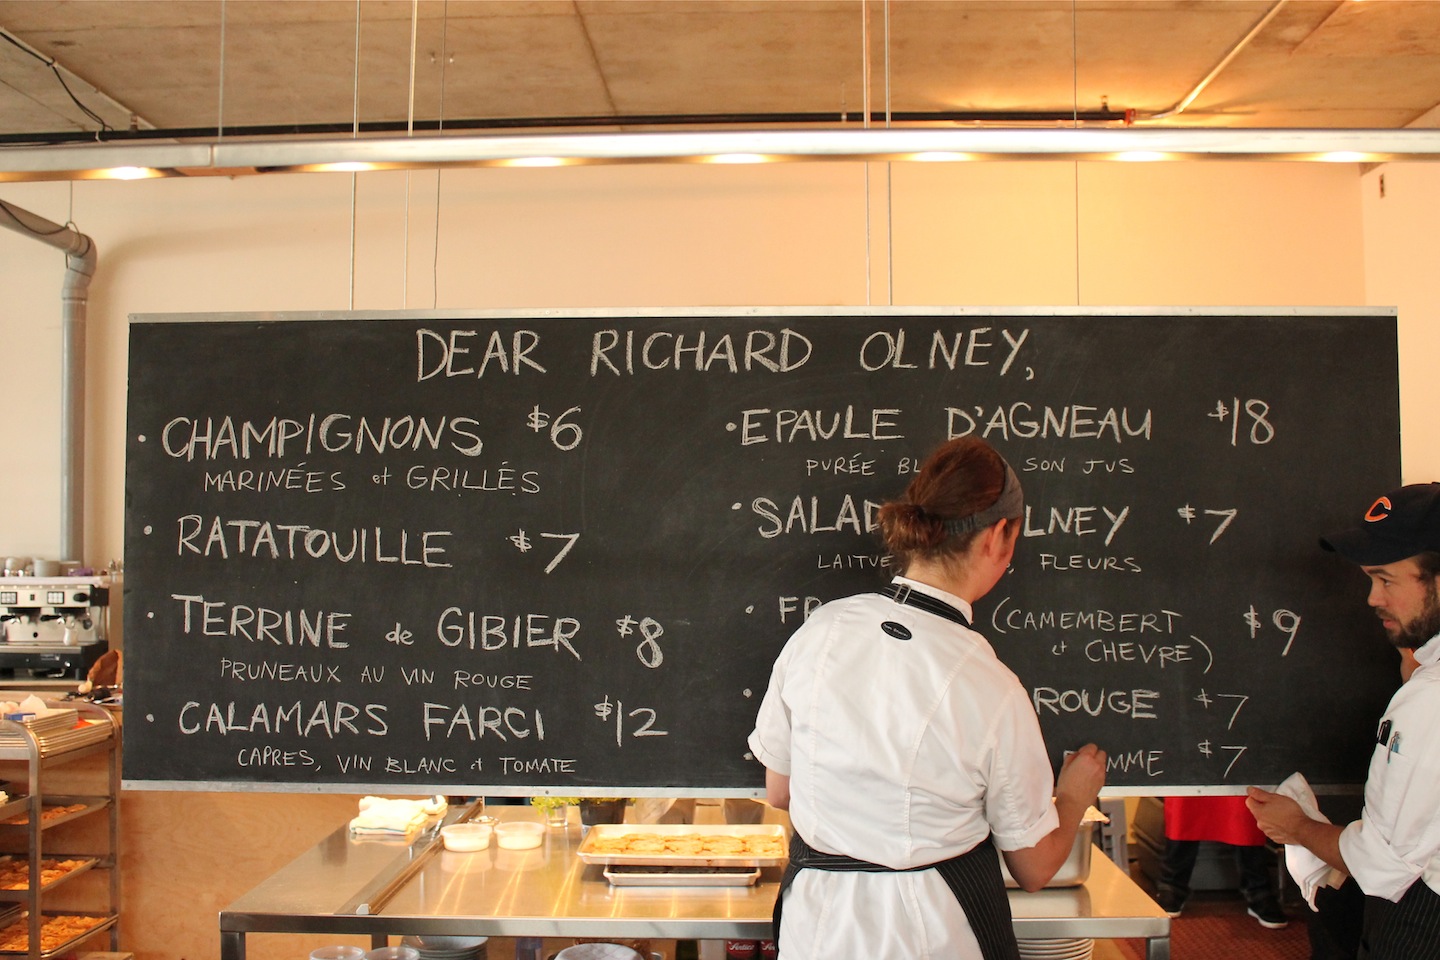 DEAR RICHARD OLNEY,
• CHAMPIGNONS $6
MARINÉES et GRILLÉS
• RATATOUILLE $7
• TERRINE de GIBIER $8
PRUNEAUX AU VIN ROUGE
• CALAMARS FARCI $12
CAPRES, VIN BLANC et TOMATE
• EPAULE D'AGNEAU $18
PURÉE SON JUS
• OLNEY $7
LAITUE , FLEURS
• (CAMEMBERT $9
et CHEVRE)
• ROUGE $7
• $7
C